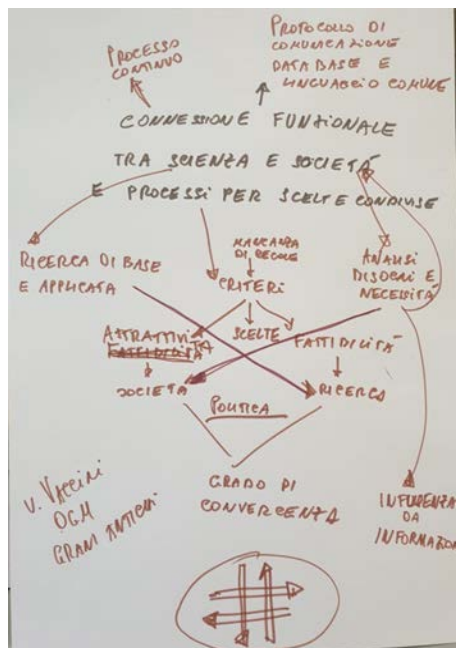 PROCESSO
CONTINUO
PROTOCOLLO DI
COMUNICAZIONE
DATABASE E
LINGUAGGIO COMUNE
CONNESSIONE FUNZIONALE
TRA SCIENZA E SOCIETÁ
E PROCESSI PER SCELTE CONDIVISE
RICERCA DI BASE
E APPLICATA
MANCANZA
DI REGOLE
CRITERI
ANALISI
BISOGNI E
NECESSITÁ
ATTRATTIVITÁ
FATTIBILITÁ
SCELTE
FATTIBILITÁ
SOCIETÁ
RICERCA
POLITICA
GRADO DI
CONVERGENZA
V. VACCINI
OGM
GRANI ANTICHI
INFLUENZA
DA
INFORMAZIONI